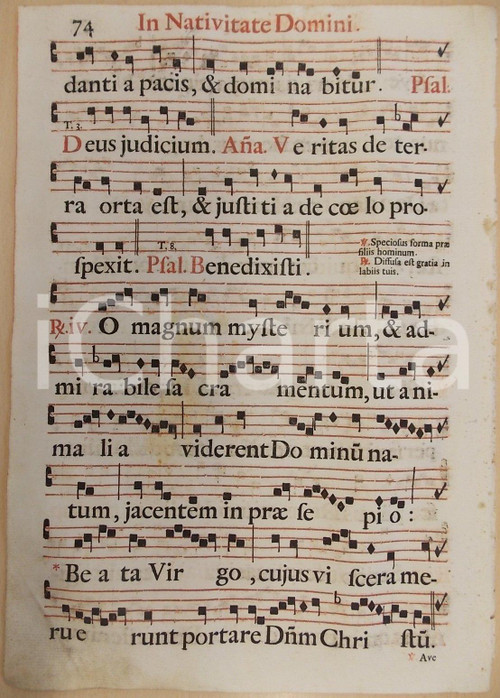 74 In Nativitate Domini.
danti a pacis, & domi na bitur. Psal.
T. 3.
Deus judicium. Aña. Ve ritas de ter-
ra orta est, & justi ti a de cœ lo pro-
T. 8.
spexit. Psal. Benedixisti.
℣. Speciosus forma præ
filiis hominum.
℟. Diffusa est gratia in
labiis tuis.
℟. iv. O magnum myste ri um, & ad-
mi ra bile sa cra mentum, ut a ni-
ma li a viderent Do minū na-
tum, jacentem in præ se pi o:
* Be a ta Vir go, cujus vi scera me-
ru e runt portare Dñm Chri stū.
* Ave
iCharta